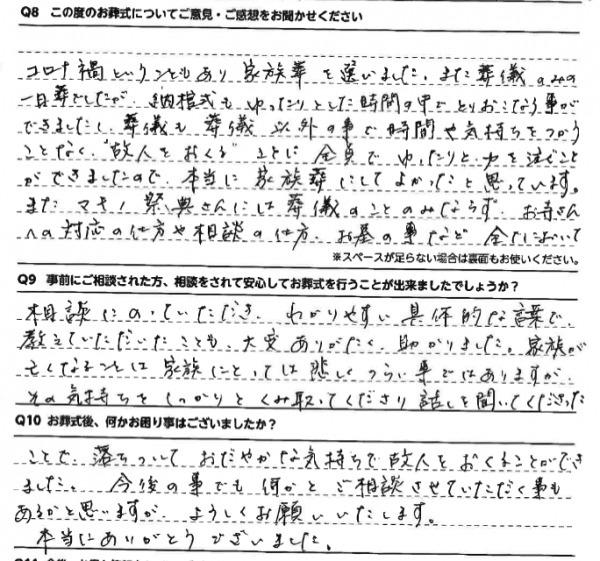 Q8 この度のお葬式についてご意見・ご感想をお聞かせください
コロナ禍ということもあり家族葬を選いました。また葬儀のみの
一日葬でしたが、納棺式もゆったりとした時間の中でとりおこなう事が
できましたし、葬儀も葬儀以外の事で時間や気持ちをつかう
ことなく、"故人をおくる"ことに全員でゆったりと力を注ぐこと
ができましたので、本当に家族葬にしてよかったと思っています。
またマキノ祭典さんには葬儀のことのみならず、お寺さん
への対応の仕方や相談の仕方、お墓の事など全てにおいて
※スペースが足らない場合は裏面もお使いください。
Q9 事前にご相談された方、相談をされて安心してお葬式を行うことが出来ましたでしょうか？
相談にのっていただき、わかりやすい具体的な言葉で、
教えていただいたことも、大変ありがたく、助かりました。家族が
亡くなることは家族にとっては悲しくつらい事ではありますが、
その気持ちをしっかりとくみ取ってくださり話しを聞いてくださった
Q10 お葬式後、何かお困り事はございましたか？
ことで、落ちついておだやかな気持ちで故人をおくることができ
ました。今後の事でも何かとご相談させていただく事も
あるかと思いますが、よろしくお願いいたします。
本当にありがとうございました。